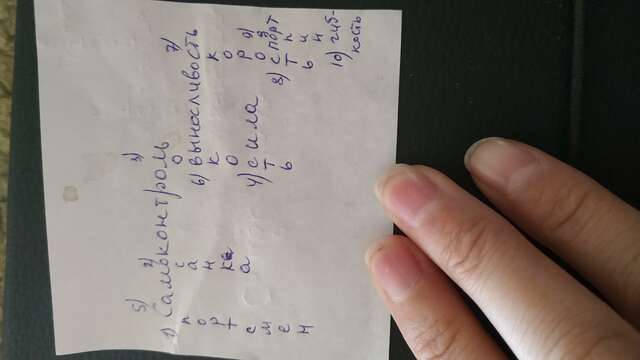 5) 2) 3)
1) Самоконтроль 7)
п с о
о а 6) выносливость
р н к к
т к о о
с а 4) сила р 9)
м т о з
е ь 8) спорт
н т п
ь и н
10) гиб-
кость